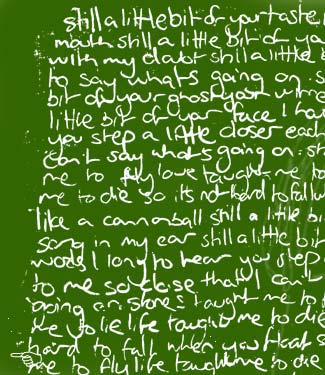 still a little bit of your taste
mouth still a little bit of you
with my doubt still a little
to say what's going on
bit of your ghost your witne
little bit of your face I ha
you step a little closer each
can't say what's going on sto
me to fly love taught me to
me to die so its not hard to fall w
like a cannonball still a little bi
song in my ear still a little bit
words I long to hear you step
to me so close that I can't
going on stones taught me to f
me to lie life taught me to die
hard to fall when you float
me to fly life taught me to die